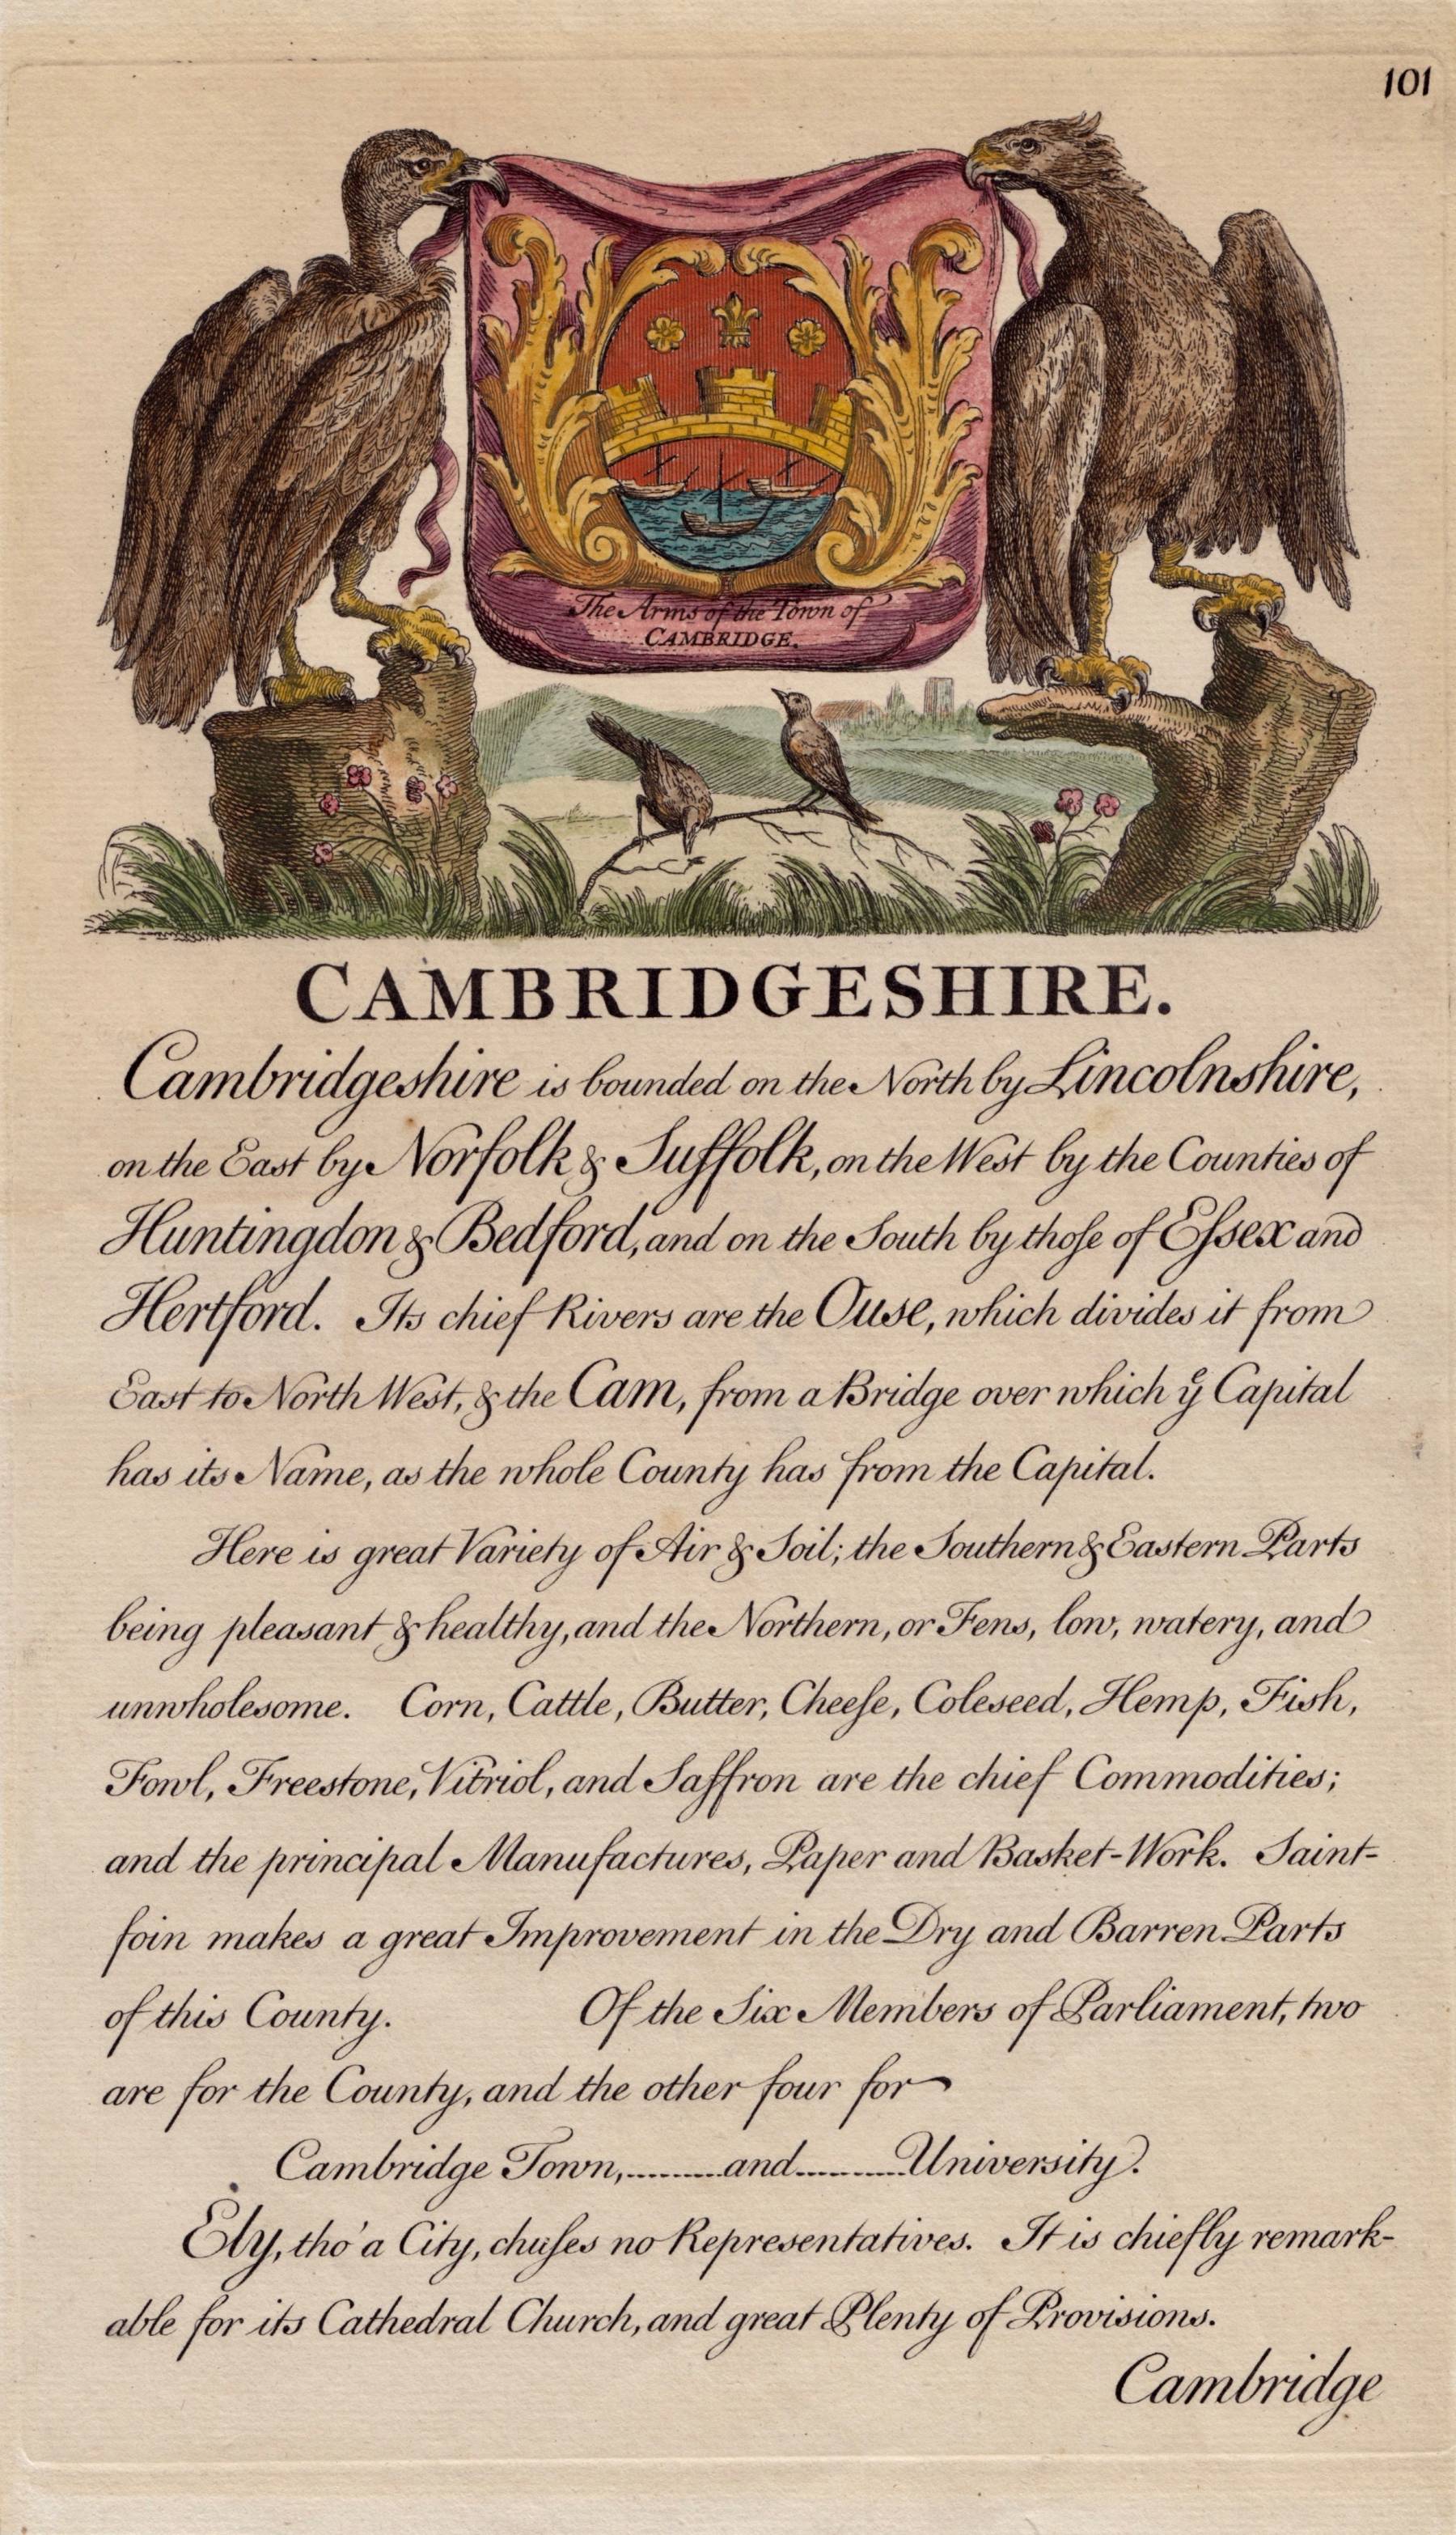 101
The Arms of the Town of
CAMBRIDGE.
CAMBRIDGESHIRE.
Cambridgeshire is bounded on the North by Lincolnshire,
on the East by Norfolk & Suffolk, on the West by the Counties of
Huntingdon & Bedford, and on the South by thoſe of Eſsex and
Hertford. Its chief Rivers are the Ouse, which divides it from
East to North West, & the Cam, from a Bridge over which yͤ Capital
has its Name, as the whole County has from the Capital.
Here is great Variety of Air & Soil; the Southern & Eastern Parts
being pleasant & healthy, and the Northern, or Fens, low, watery, and
unwholesome. Corn, Cattle, Butter, Cheeſe, Coleseed, Hemp, Fish,
Fowl, Freestone, Vitriol, and Saffron are the chief Commodities;
and the principal Manufactures, Paper and Basket-Work. Saint-
foin makes a great Improvement in the Dry and Barren Parts
of this County. Of the Six Members of Parliament, two
are for the County, and the other four for
Cambridge Town,..........and...........University.
Ely, tho' a City, chuſes no Representatives. It is chiefly remark-
able for its Cathedral Church, and great Plenty of Provisions.
Cambridge